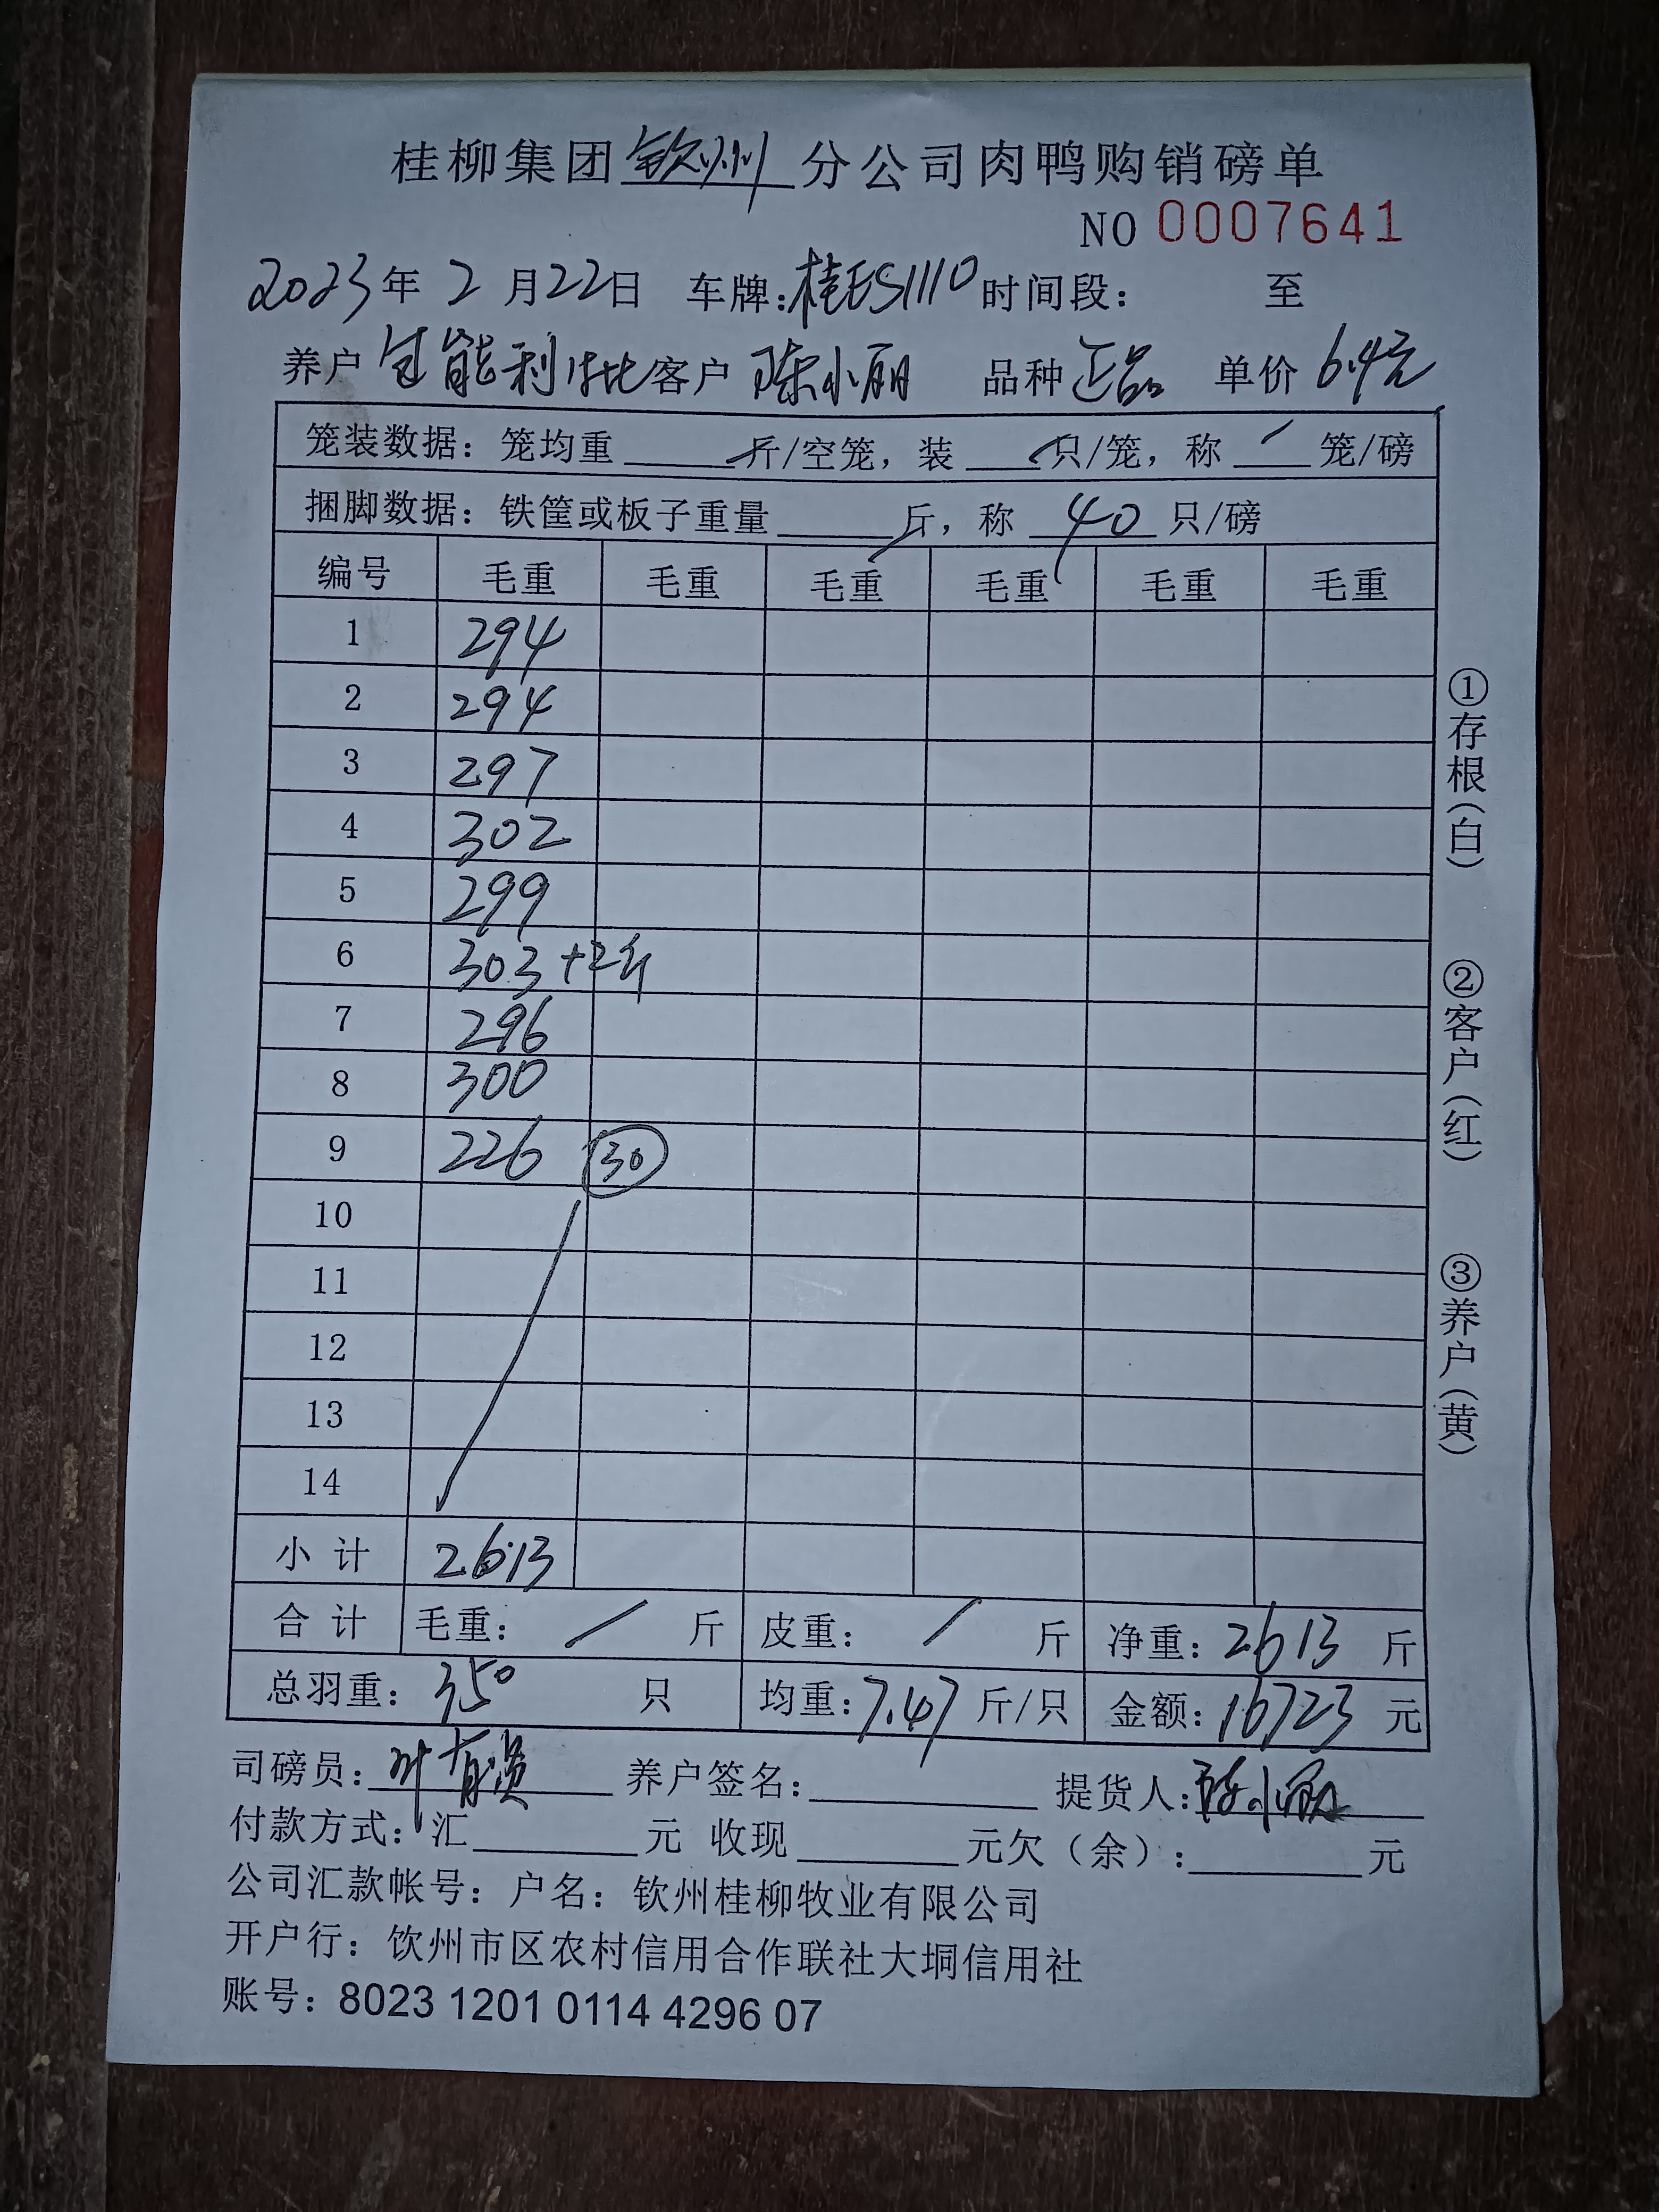 桂柳集团钦州分公司肉鸭购销磅单
NO 0007641
2023年2月22日 车牌:桂ES1110 时间段: 至
养户 能利 客户 陈小丽 品种 正品 单价 6.4元
笼装数据: 笼均重 斤/空笼, 装 只/笼, 称 笼/磅
捆脚数据: 铁筐或板子重量 斤, 称 40 只/磅
编号 毛重 毛重 毛重 毛重 毛重 毛重
1 294
2 294
3 297
4 302
5 299
6 303 +2斤
7 296
8 300
9 226 30
10
11
12
13
14
小计 2613
合计 毛重: / 斤 皮重: / 斤 净重: 2613 斤
总羽重: 350 只 均重: 7.47 斤/只 金额: 16723 元
司磅员: 叶有 养户签名: 提货人: 陈小丽
付款方式: 汇 元 收现 元欠(余): 元
公司汇款帐号: 户名: 钦州桂柳牧业有限公司
开户行: 钦州市区农村信用合作联社大垌信用社
账号: 8023 1201 0114 4296 07
①存根(白)
②客户(红)
③养户(黄)